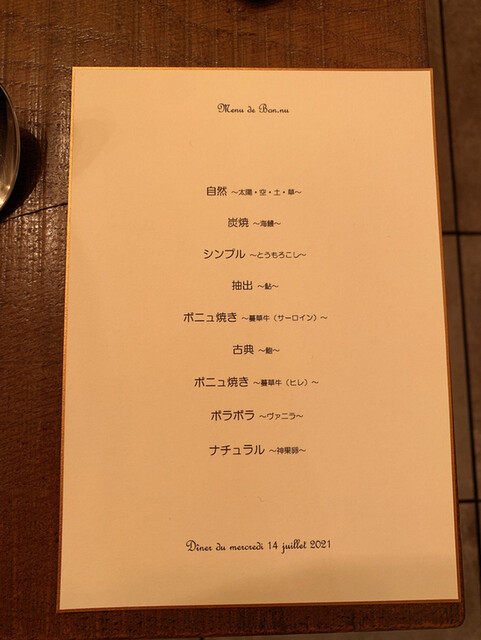 Menu de Bon.nu
自然 ～太陽・空・土・草～
炭焼 ～海鰻～
シンプル ～とうもろこし～
抽出 ～鮎～
ボニュ焼き ～蔓草牛（サーロイン）～
古典 ～鮑～
ボニュ焼き ～蔓草牛（ヒレ）～
ボラボラ ～ヴァニラ～
ナチュラル ～神果卵～
Dîner du mercredi 14 juillet 2021